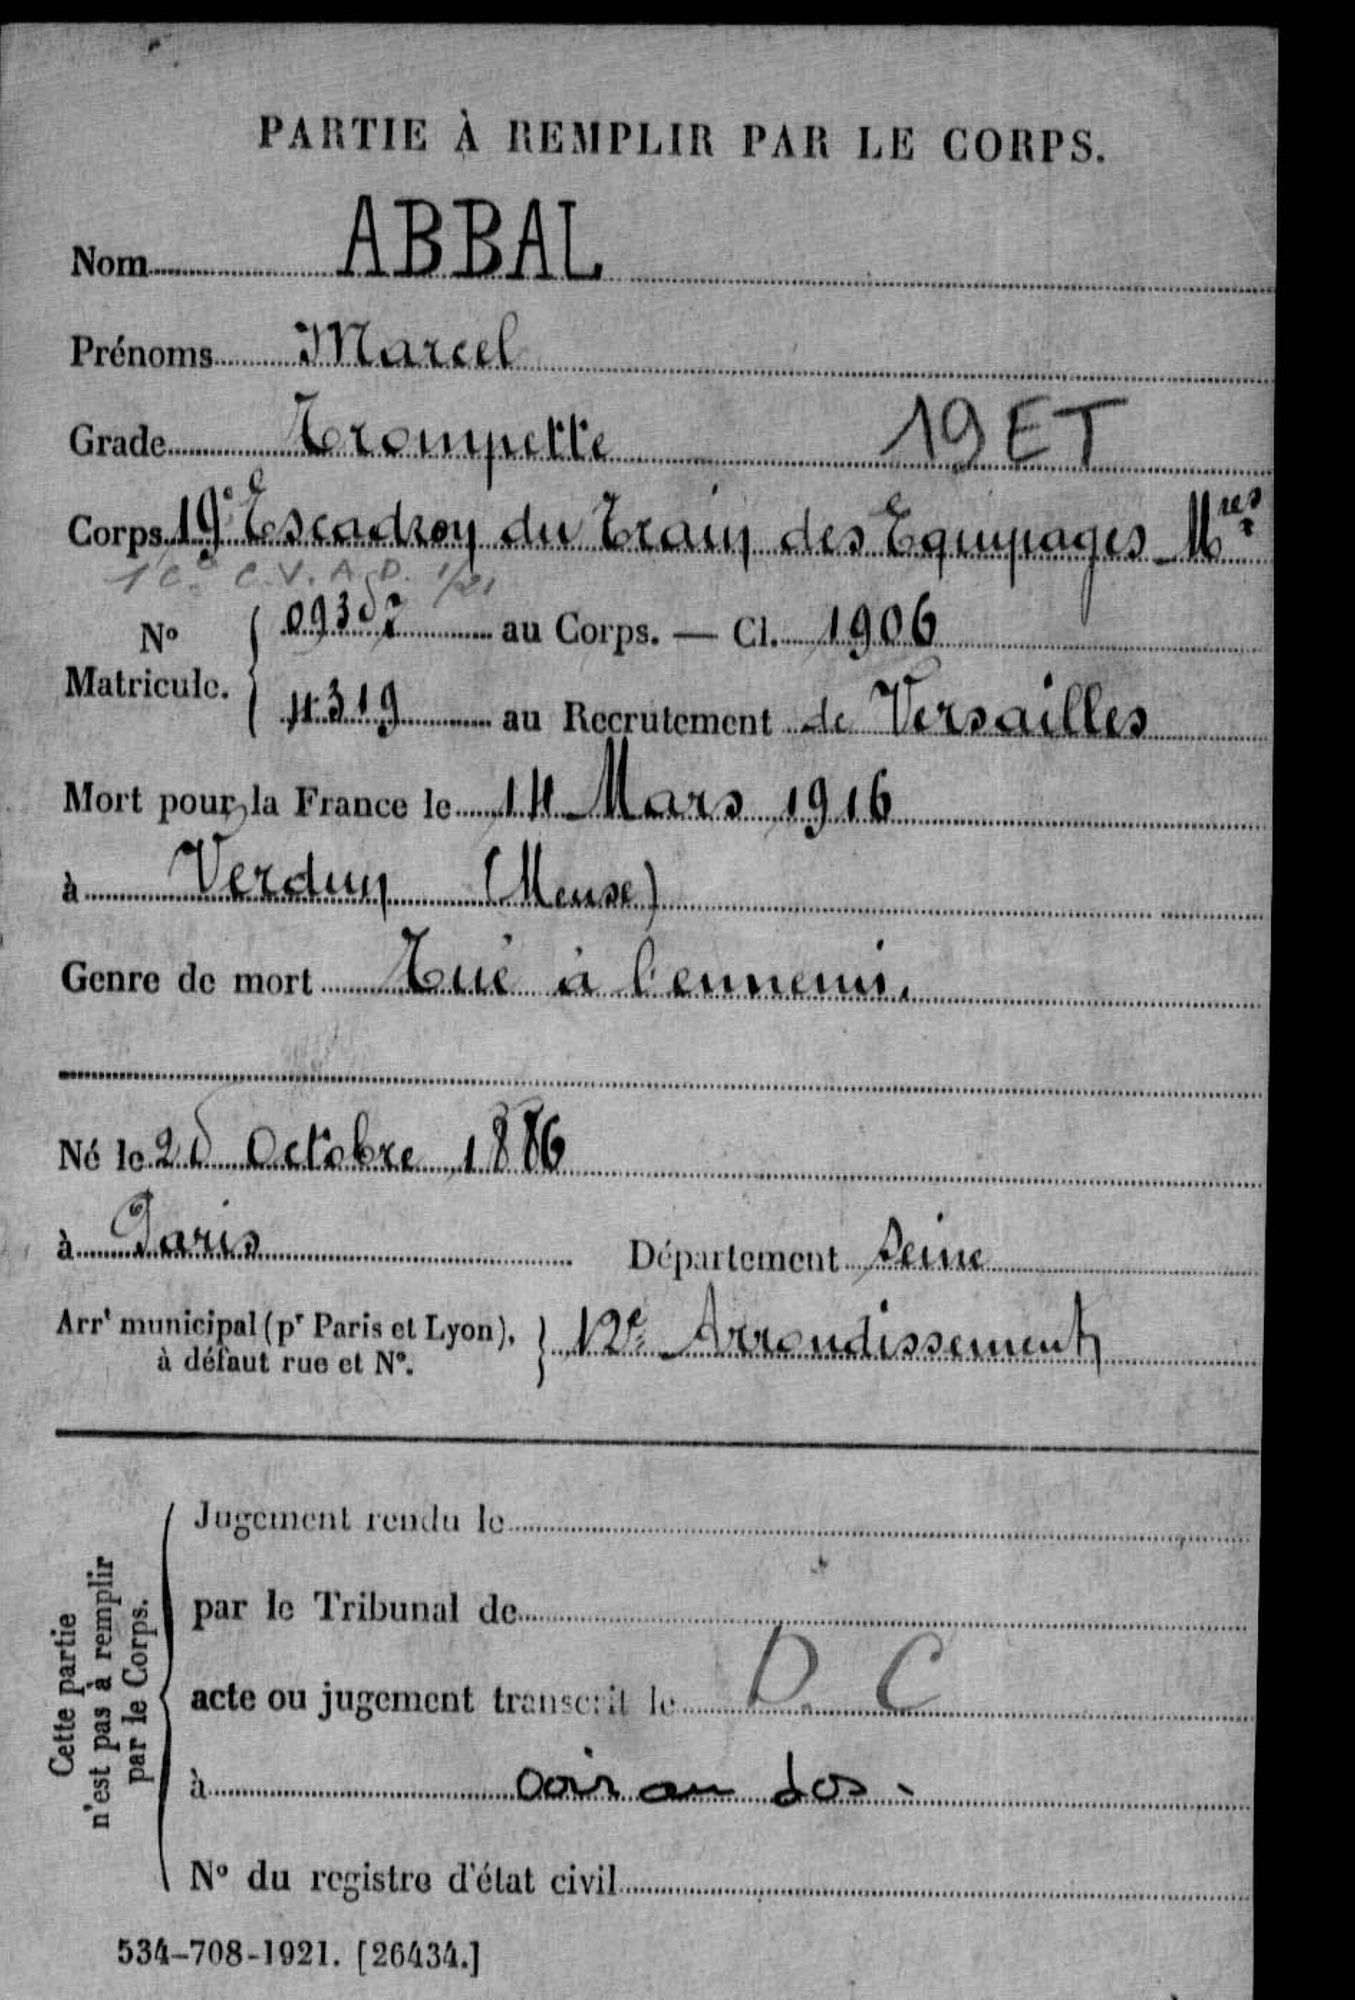 PARTIE À REMPLIR PAR LE CORPS.
Nom ABBAL
Prénoms Marcel
Grade Trompette 19 ET
Corps 19e Escadron du Train des Equipages Mres
1 Cie C.V.A.D. 1/21
No Matricule. 093 2 au Corps. — Cl. 1906
4319 au Recrutement de Versailles
Mort pour la France le 14 Mars 1916
à Verdun (Meuse)
Genre de mort Tué à l'ennemi.
Né le Octobre 1886
à Paris Département Seine
Arrt municipal (pr Paris et Lyon), à défaut rue et No. 12e Arrondissement
Cette partie n'est pas à remplir par le Corps.
Jugement rendu le
par le Tribunal de
acte ou jugement transcrit le D. C
à voir au dos.
No du registre d'état civil
534-708-1921. [26434.]